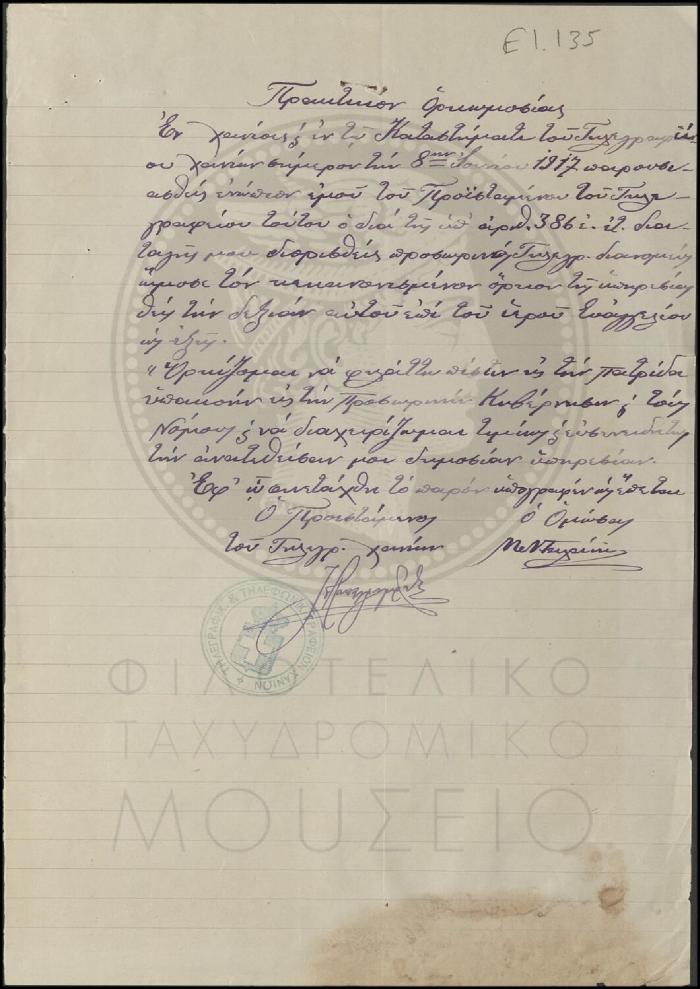 Ε1.135
Πρακτικόν Ὁρκωμοσίας
Ἐν Χανίοις ἐν τῷ Καταστήματι τοῦ Τηλεγραφεί-
ου Χανίων σήμερον τὴν 8ην Ἰουνίου 1917 παρουσι-
ασθεὶς ἐνώπιον ἐμοῦ τοῦ Προϊσταμένου τοῦ Τηλε-
γραφείου τούτου ὁ διὰ τῆς ὑπ' ἀριθ. 386 ἐ. ἔ. δια-
ταγῆς μου διορισθεὶς προσωρινὸς Τηλεγρ. διανομεὺς
ὤμοσε τὸν κεκανονισμένον ὅρκον τῆς ὑπηρεσίας
θεὶς τὴν δεξιὰν αὐτοῦ ἐπὶ τοῦ ἱεροῦ Εὐαγγελίου
ὡς ἑξῆς.
"Ὁρκίζομαι νὰ φυλάττω πίστιν εἰς τὴν Πατρίδα
ὑπακοὴν εἰς τὴν Προσωρινὴν Κυβέρνησιν ς τοὺς
Νόμους ς νὰ διαχειρίζωμαι τιμίως ς εὐσυνειδήτως
τὴν ἀνατεθεῖσάν μοι δημοσίαν ὑπηρεσίαν.
Ἐφ' ᾧ συνετάχθη τὸ παρὸν ὑπογραφὲν ὡς ἕπεται
Ὁ Προϊστάμενος Ὁ Ὀμόσας
τοῦ Τηλεγρ. Χανίων
ΤΗΛΕΓΡΑΦΙΚ. & ΤΗΛΕΦΩΝΙΚ. ΓΡΑΦΕΙΟΝ ΧΑΝΙΩΝ
ΦΙΛΟΤΕΛΙΚΟ
ΤΑΧΥΔΡΟΜΙΚΟ
ΜΟΥΣΕΙΟ